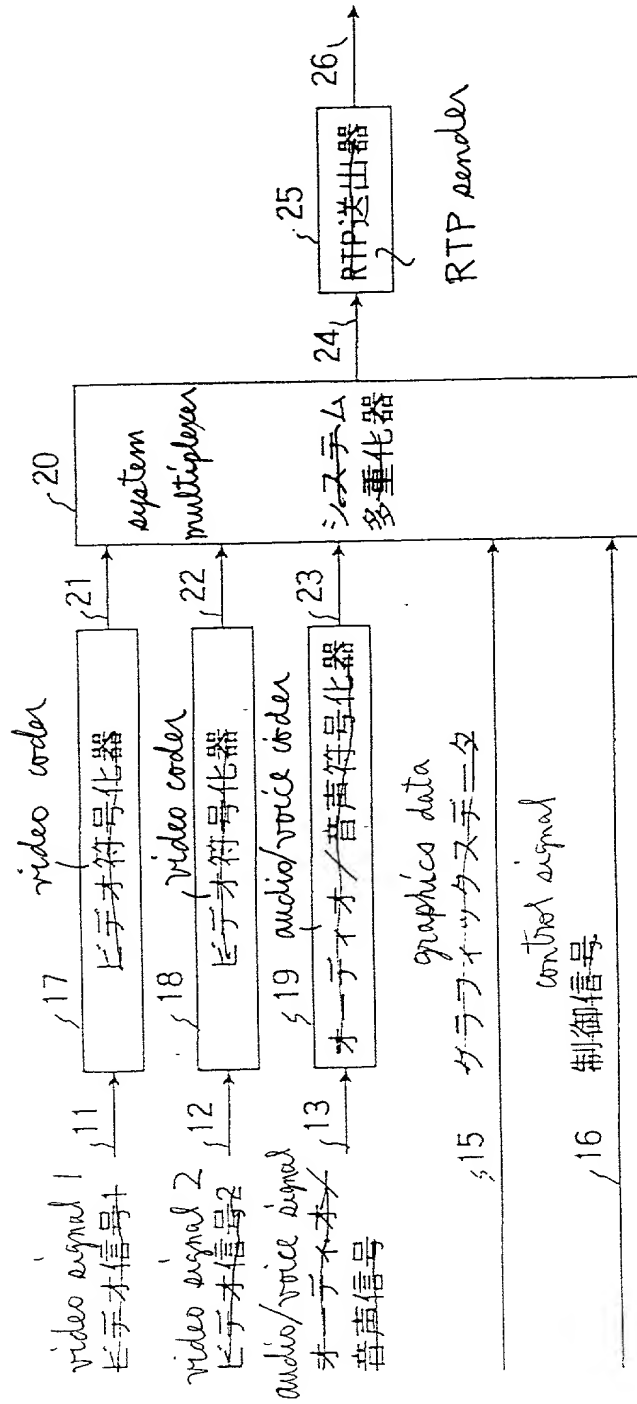 video signal 1
ビデオ信号1
11
17
video coder
ビデオ符号化器
21
video signal 2
ビデオ信号2
12
18
video coder
ビデオ符号化器
22
audio/voice signal
オーディオ/
音声信号
13
19
audio/voice coder
オーディオ/音声符号化器
23
15
graphics data
グラフィックスデータ
16
control signal
制御信号
20
system
multiplexer
システム
多重化器
24
25
RTP送出器
RTP sender
26